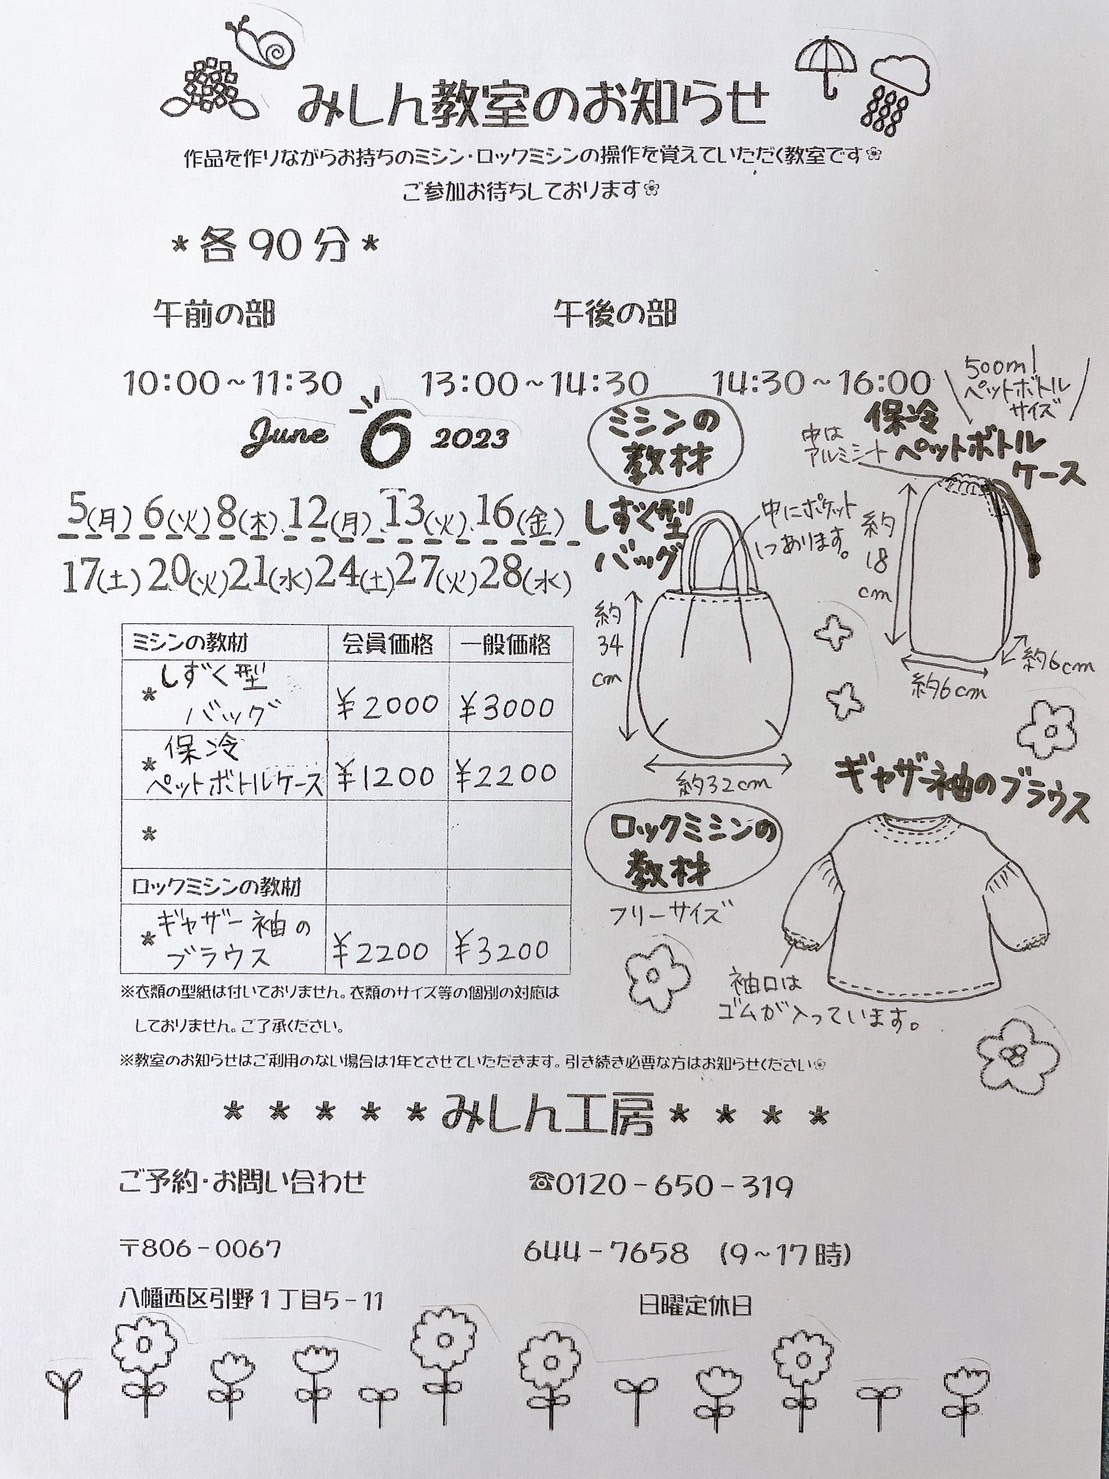 みしん教室のお知らせ
作品を作りながらお持ちのミシン・ロックミシンの操作を覚えていただく教室です
ご参加お待ちしております
*各90分*
午前の部 午後の部
10:00~11:30 13:00~14:30 14:30~16:00
June 6 2023
5(月) 6(火) 8(木) 12(月) 13(火) 16(金)
17(土) 20(火) 21(水) 24(土) 27(火) 28(水)
ミシンの教材 会員価格 一般価格
*しずく型
バッグ ¥2000 ¥3000
*保冷
ペットボトルケース ¥1200 ¥2200
*
ロックミシンの教材
*ギャザー袖の
ブラウス ¥2200 ¥3200
ミシンの
教材
しずく型
バッグ
中にポケット
にっあります。
約
34
cm
約32cm
500ml
ペットボトル
サイズ
保冷
ペットボトル
ケース
中は
アルミシート
約
18
cm
約6cm
約6cm
ギャザー袖のブラウス
ロックミシンの
教材
フリーサイズ
袖口は
ゴムが入っています。
※衣類の型紙は付いておりません。衣類のサイズ等の個別の対応は
しておりません。ご了承ください。
※教室のお知らせはご利用のない場合は1年とさせていただきます。引き続き必要な方はお知らせください
* * * * *みしん工房* * * *
ご予約・お問い合わせ ☎0120-650-319
〒806-0067 644-7658 (9~17時)
八幡西区引野1丁目5-11 日曜定休日